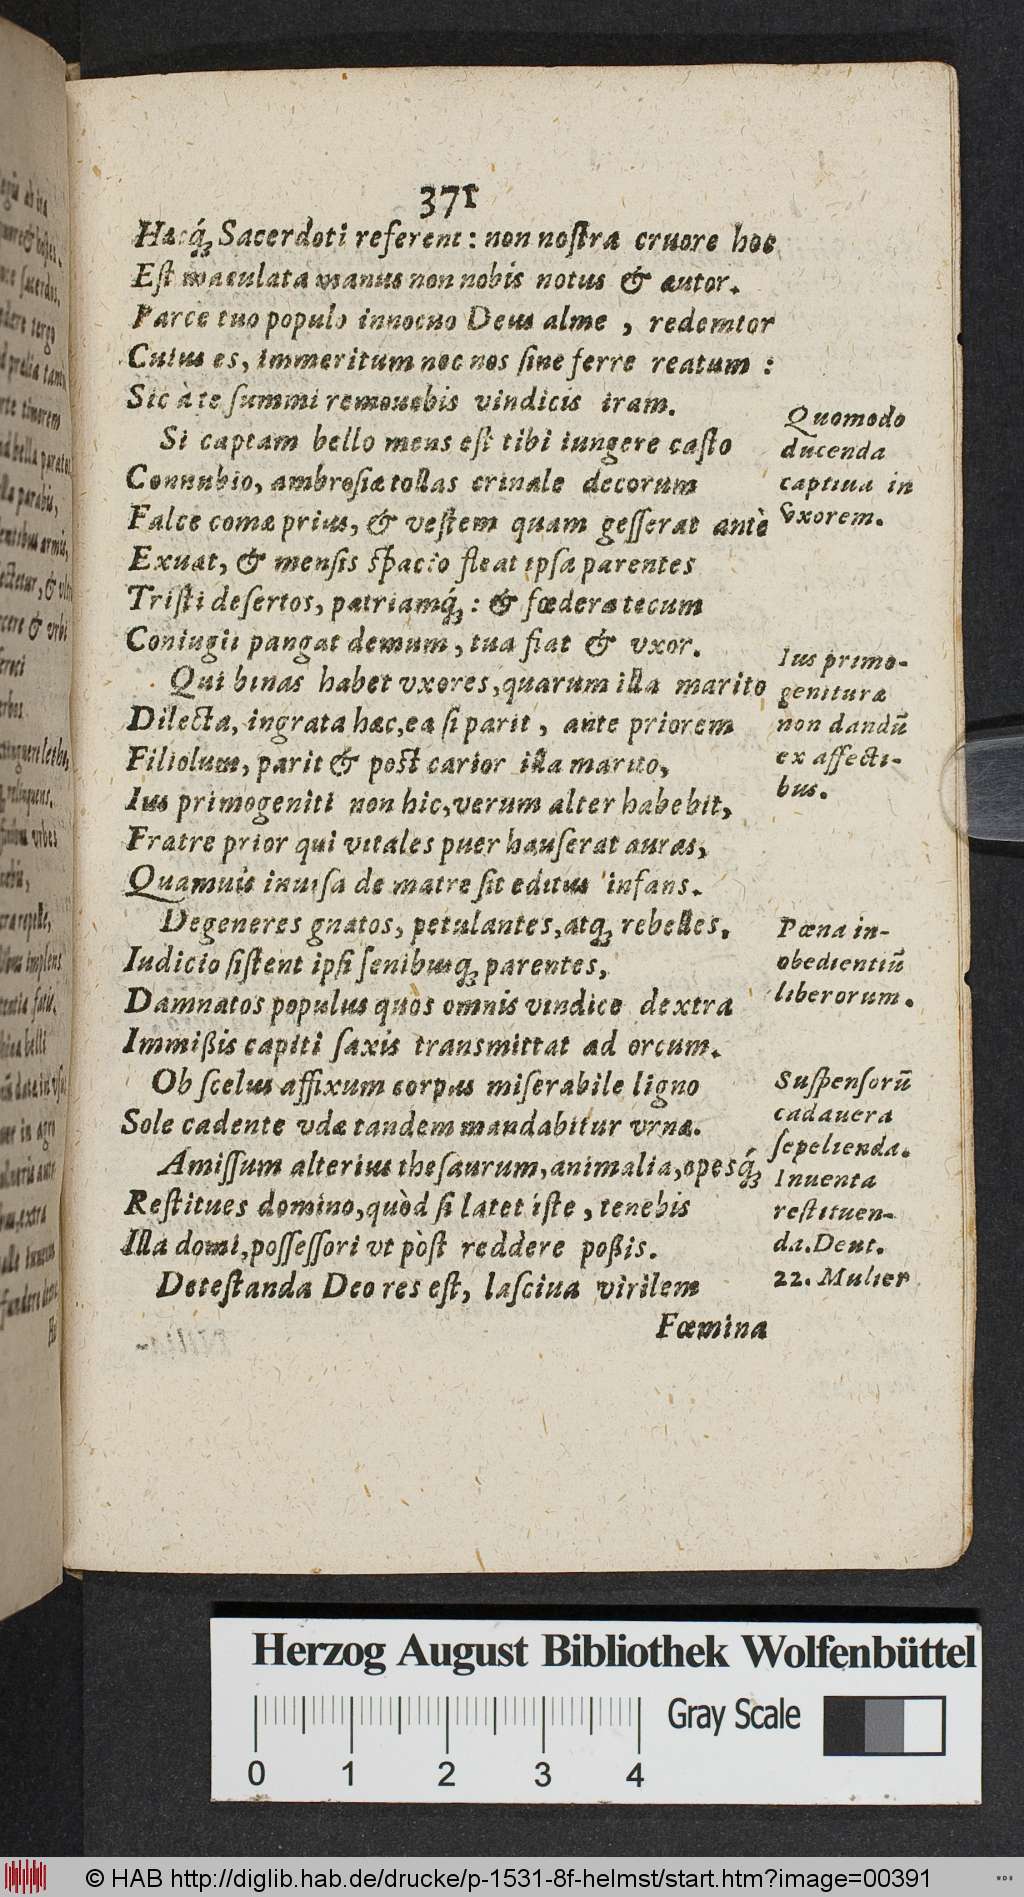 371
Hæcq́; Sacerdoti referent: non nostra cruore hoc
Est maculata manus non nobis notus & autor.
Parce tuo populo innocuo Deus alme, redemtor
Cuius es, immeritum nec nos sine ferre reatum:
Sic à te summi remouebis vindicis iram.
Si captam bello mens est tibi iungere casto
Connubio, ambrosiæ tollas crinale decorum
Falce comæ prius, & vestem quam gesserat antè
Exuat, & mensis spacio fleat ipsa parentes
Tristi desertos, patriamq́;: & fœdera tecum
Coniugii pangat demum, tua fiat & vxor.
Quomodo
ducenda
captiua in
vxorem.
Qui binas habet vxores, quarum illa marito
Dilecta, ingrata hæc, ea si parit, ante priorem
Filiolum, parit & post carior illa marito,
Ius primogeniti non hic, verum alter habebit,
Fratre prior qui vitales puer hauserat auras,
Quamuis inuisa de matre sit editus infans.
Ius primo-
genituræ
non dandū
ex affecti-
bus.
Degeneres gnatos, petulantes, atq; rebelles,
Iudicio sistent ipsi senibusq; parentes,
Damnatos populus quos omnis vindice dextra
Immißis capiti saxis transmittat ad orcum.
Pœna in-
obedientiū
liberorum.
Ob scelus affixum corpus miserabile ligno
Sole cadente vdæ tandem mandabitur vrnæ.
Suspensorū
cadauera
sepelienda.
Amissum alterius thesaurum, animalia, opesq́;
Restitues domino, quòd si latet iste, tenebis
Illa domi, possessori vt pòst reddere poßis.
Inuenta
restituen-
da. Deut.
22. Mulier
Detestanda Deo res est, lasciua virilem
Fœmina
Herzog August Bibliothek Wolfenbüttel
Gray Scale
0 1 2 3 4
© HAB http://diglib.hab.de/drucke/p-1531-8f-helmst/start.htm?image=00391